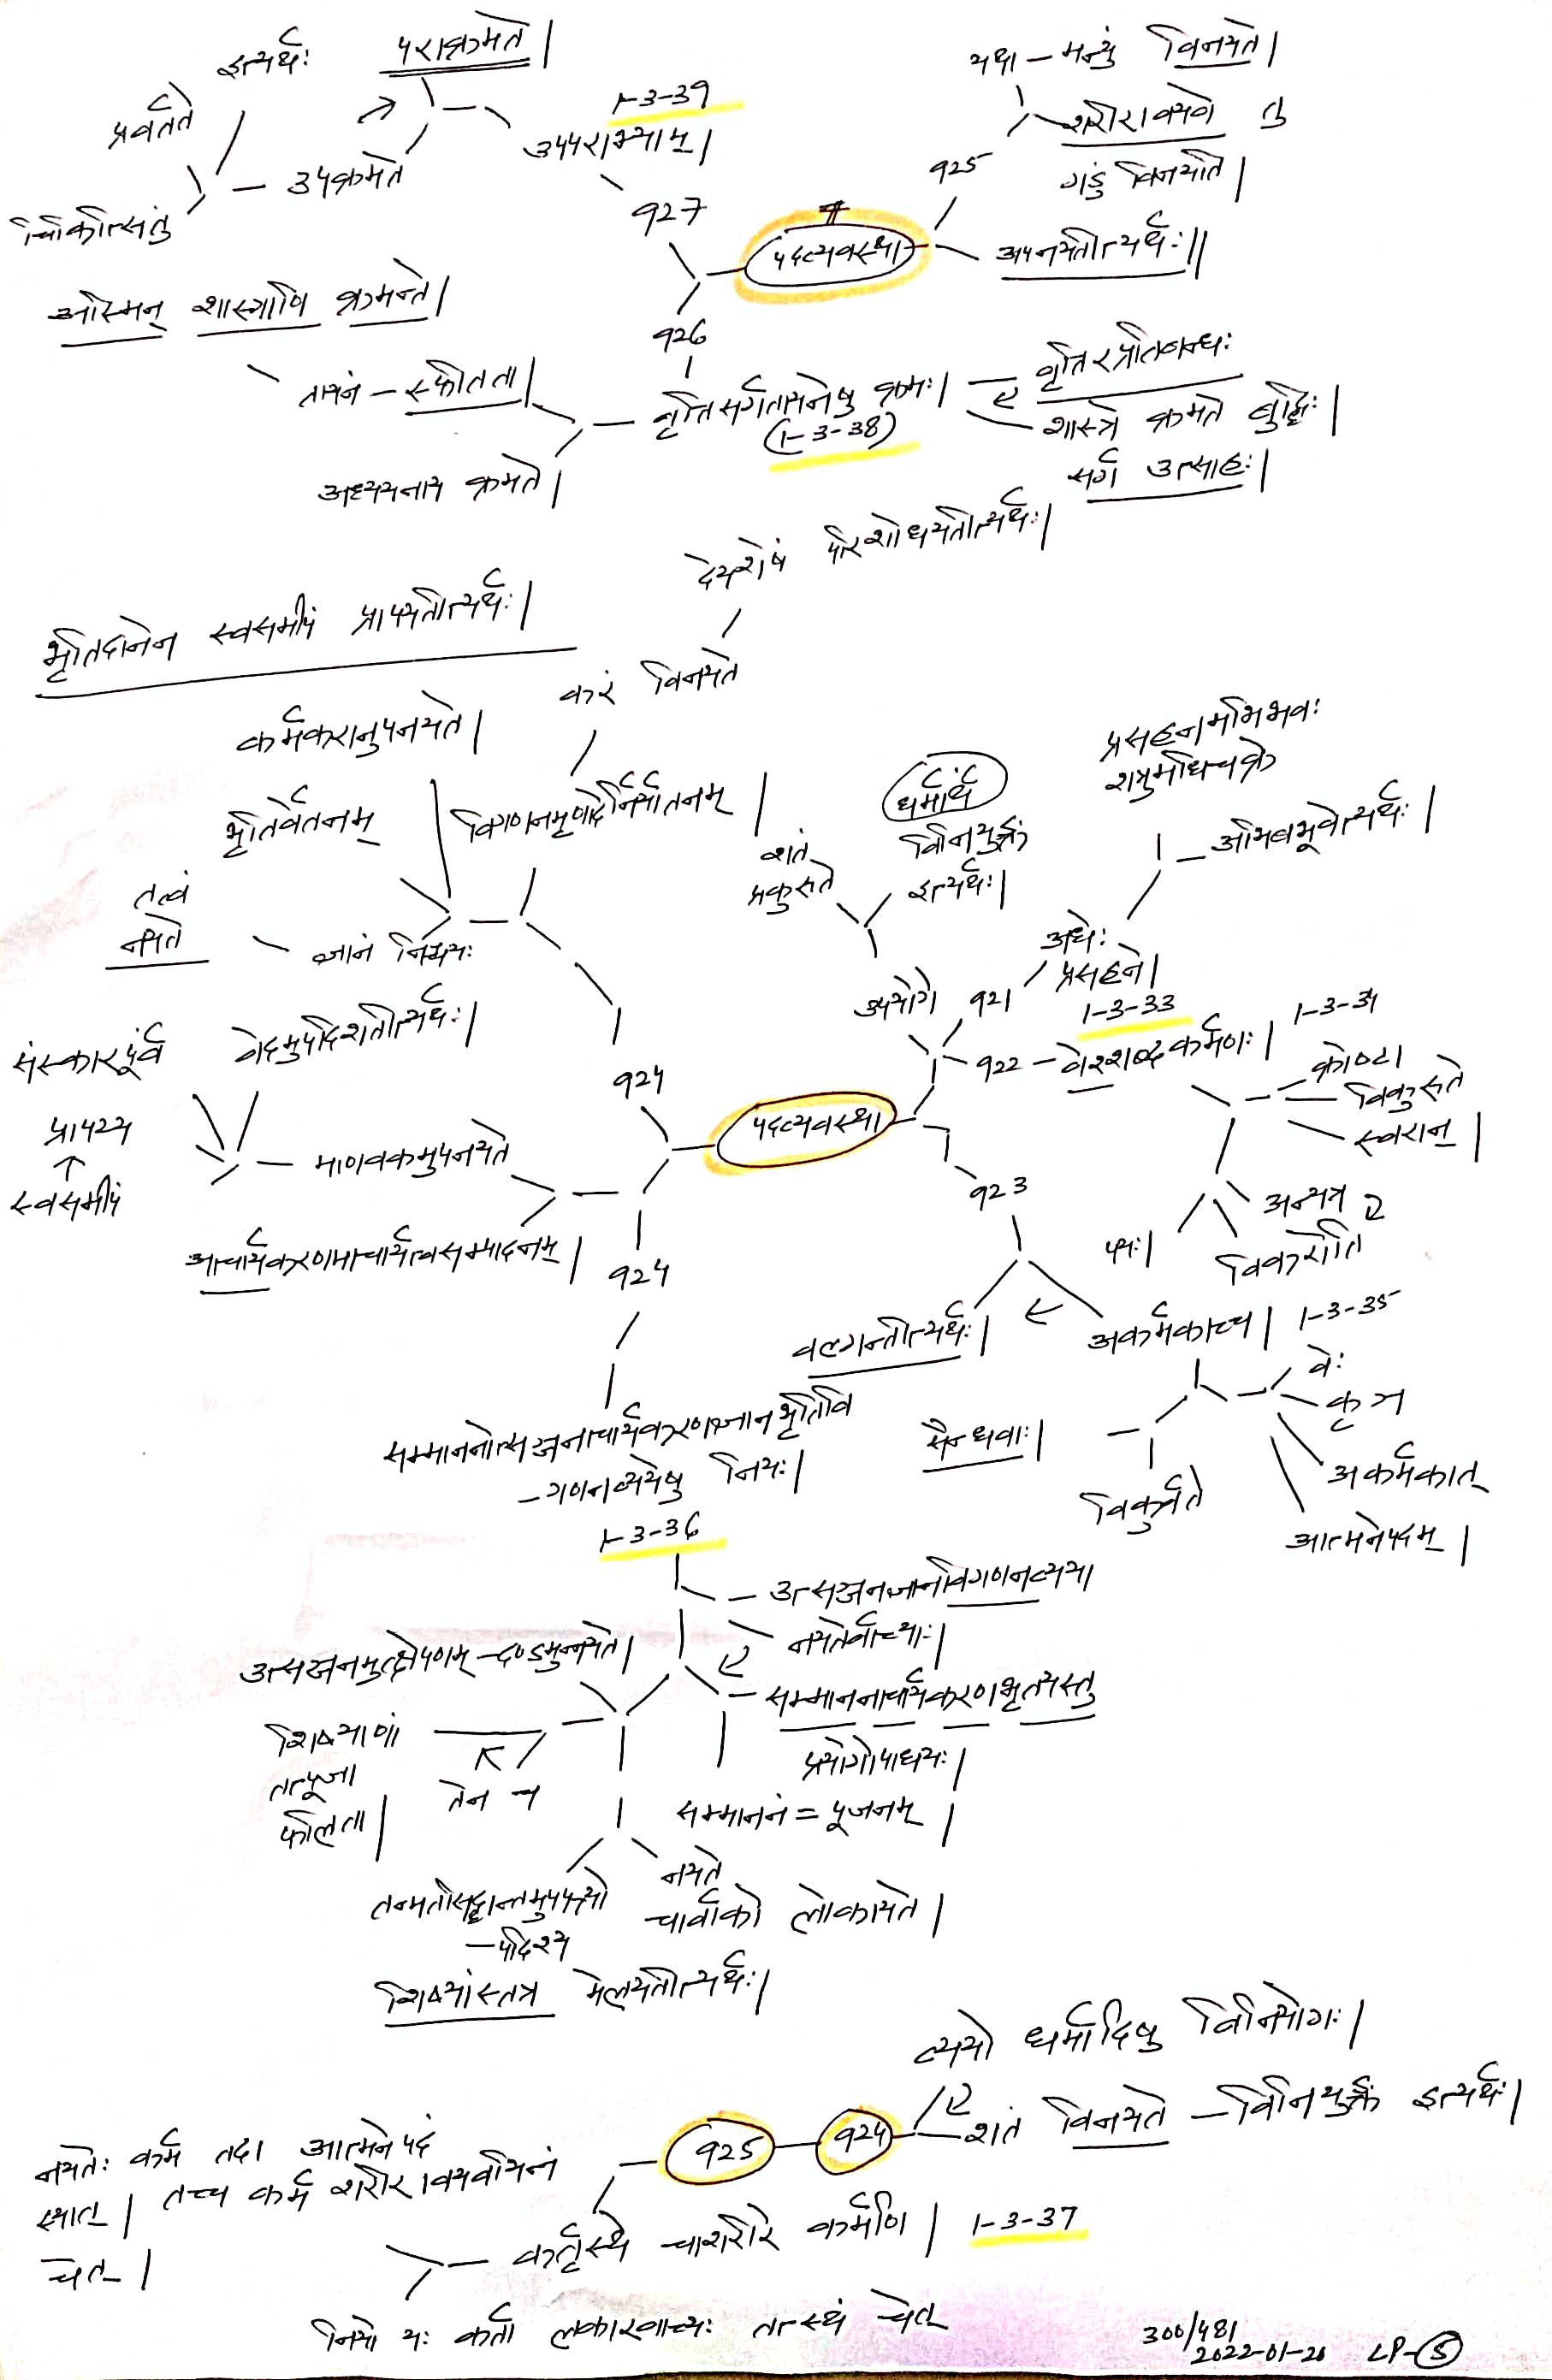 इत्यर्थः
पराक्रमते |
प्रवर्तते
1-3-39
उपपराभ्याम् |
उपक्रमते
चिकीत्सितुं
927
यथा — मन्युं विनयते |
शरीरावयवे तु
गडुं विनयति |
925
पदव्यवस्था
अपनयतीत्यर्थः ||
अस्मिन् शास्त्राणि क्रमन्ते |
926
तायनं — स्फीतता |
वृत्तिसर्गतायनेषु क्रमः |
(1-3-38)
वृत्तिरप्रतिबन्धः
शास्त्रे क्रमते बुद्धिः |
सर्ग उत्साहः |
अध्ययनाय क्रमते |
देयशेषं परिशोधयतीत्यर्थः |
भृतिदानेन स्वसमीपं प्रापयतीत्यर्थः |
करं विनयते
कर्मकरानुपनयते |
भृतिर्वेतनम्
विगणनमृणादेर्निर्यातनम् |
तत्वं
नयते
ज्ञानं निश्चयः
प्रसहनमभिभवः
शत्रुमधिचक्रे
अभिबभूवेत्यर्थः |
धर्मार्थं
विनियुङ्क्ते
इत्यर्थः |
शतं
प्रकुरुते
उपयोगे
921
अधेः
प्रसहने |
1-3-33
922 — वेःशब्दकर्मणः | 1-3-34
क्रोष्टा
विकुरुते
स्वरान् |
अन्यत्र
विकरोति
संस्कारपूर्वं वेदमुपदिशतीत्यर्थः |
प्रापय्य
स्वसमीपं
माणवकमुपनयते
924
पदव्यवस्था
923
आचार्यकरणमाचार्यत्वसम्पादनम् |
924
वल्गन्तीत्यर्थः |
अकर्मकाच्च | 1-3-35
वेः
कृञ
अकर्मकात्
आत्मनेपदम् |
सैन्धवाः |
विकुर्वते
सम्माननोत्सञ्जनाचार्यकरणज्ञानभृतिवि
—गणनव्ययेषु नियः |
1-3-36
उत्सञ्जनज्ञानविगणनव्यया
नयतेर्वाच्याः |
उत्सञ्जनमुत्क्षेपणम् — दण्डमुन्नयते |
सम्माननाचार्यकरणभृतयस्तु
प्रयोगोपाधयः |
शिष्याणां
तत्पूजा
फलिता |
तेन च
सम्माननं = पूजनम् |
नयते
चार्वाको लोकायते |
—पदिश्य
शिष्यांस्तत्र मेलयतीत्यर्थः |
व्ययो धर्मादिषु विनियोगः |
925 — 924 — शतं विनयते — विनियुङ्क्ते इत्यर्थः |
नयतेः कर्म तदा आत्मनेपदं
स्यात् | तच्च कर्म शरीरावयवभिन्नं
चेत् |
कर्तृस्थे चाशरीरे कर्मणि | 1-3-37
नियो यः कर्ता लकारवाच्यः तत्स्थं चेत्
300/481
2022-01-20 LP-5